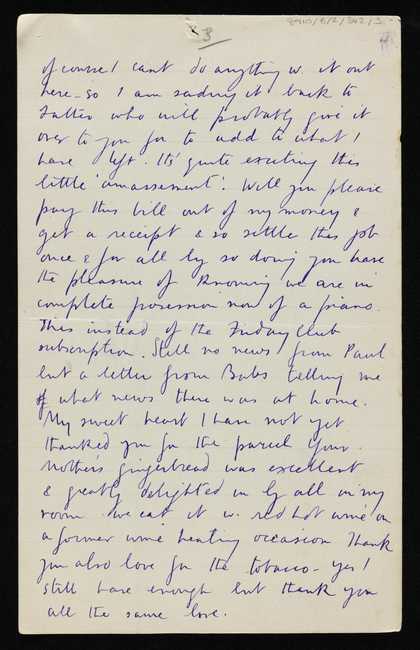 3
of course I cant do anything w. it out
here - so I am sending it back to
Fattio who will probably give it
over to you for to add to what I
have left. Its quite exciting this
little 'amassement'. Will you please
pay this bill out of my money &
get a receipt & so settle this job
once & for all by so doing you have
the pleasure of knowing we are in
complete possession now of a piano.
This instead of the Friday Club
subscription. Still no news from Paul
but a letter from Babs telling me
of what news there was at home.
My sweet heart I have not yet
thanked you for the parcel your
Mother's gingerbread was excellent
& greatly delighted in by all in my
room. we eat it w. red hot wine on
a former wine heating occasion Thank
you also love for the tobacco - yes I
still have enough but thank you
all the same love.